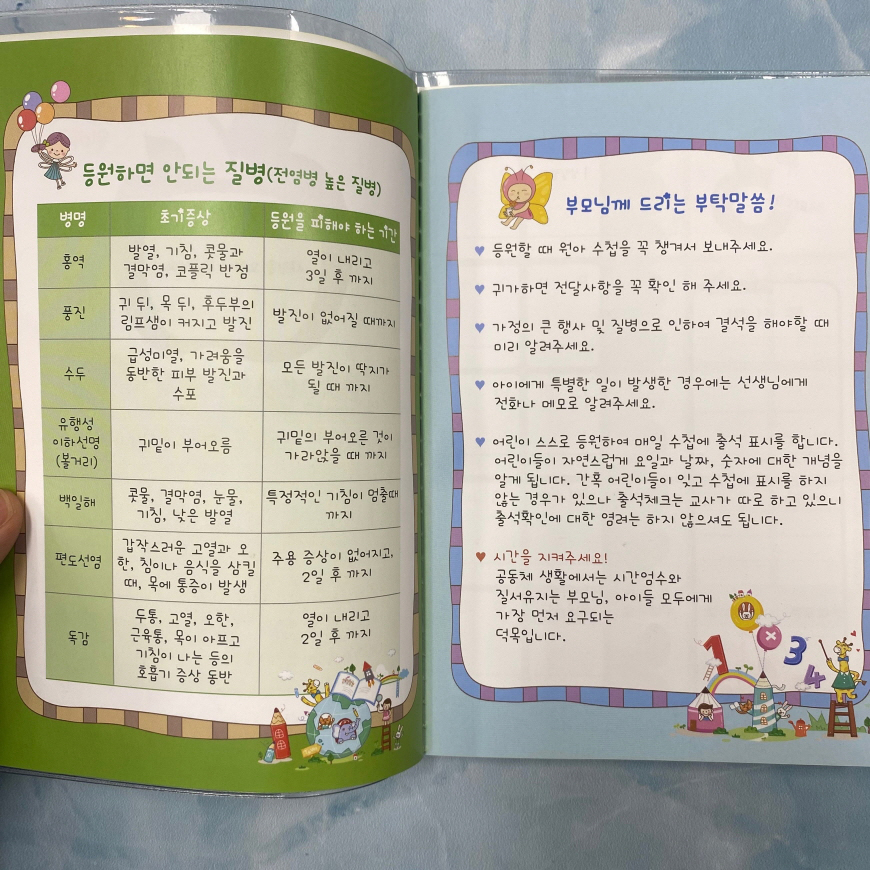 등원하면 안되는 질병(전염병 높은 질병)
병명 초기증상 등원을 피해야 하는 기간
홍역
발열, 기침, 콧물과
결막염, 코플릭 반점
열이 내리고
3일 후 까지
풍진
귀 뒤, 목 뒤, 후두부의
림프샘이 커지고 발진
발진이 없어질 때까지
수두
급성미열, 가려움을
동반한 피부 발진과
수포
모든 발진이 딱지가
될 때 까지
유행성
이하선명
(볼거리)
귀밑이 부어오름
귀밑의 부어오른 것이
가라앉을 때 까지
백일해
콧물, 결막염, 눈물,
기침, 낮은 발열
특정적인 기침이 멈출때
까지
편도선염
갑작스러운 고열과 오
한, 침이나 음식을 삼킬
때, 목에 통증이 발생
주용 증상이 없어지고,
2일 후 까지
독감
두통, 고열, 오한,
근육통, 목이 아프고
기침이 나는 등의
호흡기 증상 동반
열이 내리고
2일 후 까지
부모님께 드리는 부탁말씀!
♥ 등원할 때 원아 수첩을 꼭 챙겨서 보내주세요.
♥ 귀가하면 전달사항을 꼭 확인 해 주세요.
♥ 가정의 큰 행사 및 질병으로 인하여 결석을 해야할 때
미리 알려주세요.
♥ 아이에게 특별한 일이 발생한 경우에는 선생님에게
전화나 메모로 알려주세요.
♥ 어린이 스스로 등원하여 매일 수첩에 출석 표시를 합니다.
어린이들이 자연스럽게 요일과 날짜, 숫자에 대한 개념을
알게 됩니다. 간혹 어린이들이 잊고 수첩에 표시를 하지
않는 경우가 있으나 출석체크는 교사가 따로 하고 있으니
출석확인에 대한 염려는 하지 않으셔도 됩니다.
♥ 시간을 지켜주세요!
공동체 생활에서는 시간엄수와
질서유지는 부모님, 아이들 모두에게
가장 먼저 요구되는
덕목입니다.
1 3
4